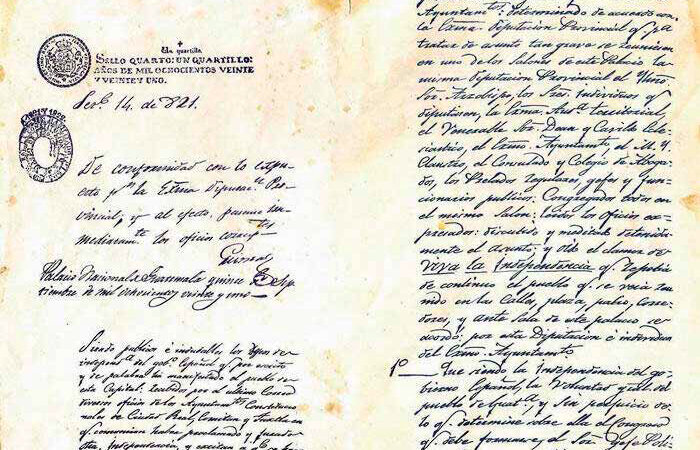 Un quartillo
SELLO QUARTO: UN QUARTILLO:
AÑOS DE MIL OCHOCIENTOS VEINTE
Y VEINTE Y UNO.
14. de 821.
De conformidad con lo expu-
esto pr. la Exma Diputac.n Pro-
vincial, y al efecto, pasense in-
mediatamte. los oficios
Palacio Nacional de Guatemala quince de Sep-
tiembre de mil ochocientos veinte y uno
Siendo publicos é indudables los deseos de
independa. del gobo. Español qe. por escrito
y de palabra ha manifestado el pueblo de
esta Capital: recibidos por el ultimo
oficios de los Ayuntamtos. Constitucio-
nales de Ciudad Real, Comitan y Tuxtla en
qe. comunican haber proclamado y jurado
dha. Independencia, y excitan á
Ayuntamto. determinado de acuerdo con
la Exma. Diputacion Provincial qe. pa.
tratar de asunto tan grave se reuniesen
en uno de los Salones de este Palacio la
misma Diputacion Provincial, el Illmo.
Sor. Arzobispo, los Sres. Individuos qe.
diputasen, la Exma. Auda. territorial,
el Venerable Sor. Dean y Cavildo Ecle-
siastico, el Exmo. Ayuntamto. el M. Y.
Claustro, el Consulado y Colegio de Aboga-
dos, los Prelados regulares, gefes y fun-
cionarios publicos: Congregados todos en
el mismo Salon: leidos los oficios ex-
presados: discutido y meditado detenida-
mente el asunto; y oido el clamor de
Viva la Independencia qe. repetia
de continuo el pueblo qe. se veia reu-
nido en las Calles, plaza, patio, corre-
dores, y ante Sala de este palacio se
acordó: por esta Diputacion é individuos
del Exmo. Ayuntamto.
1º Que siendo la Independencia del go-
bierno Español, la Voluntad gral. del
pueblo de Guata. y sin perjuicio de
lo qe. determine sobre ella el Congreso
qe. debe formarse, el Sor. Gefe Poli-